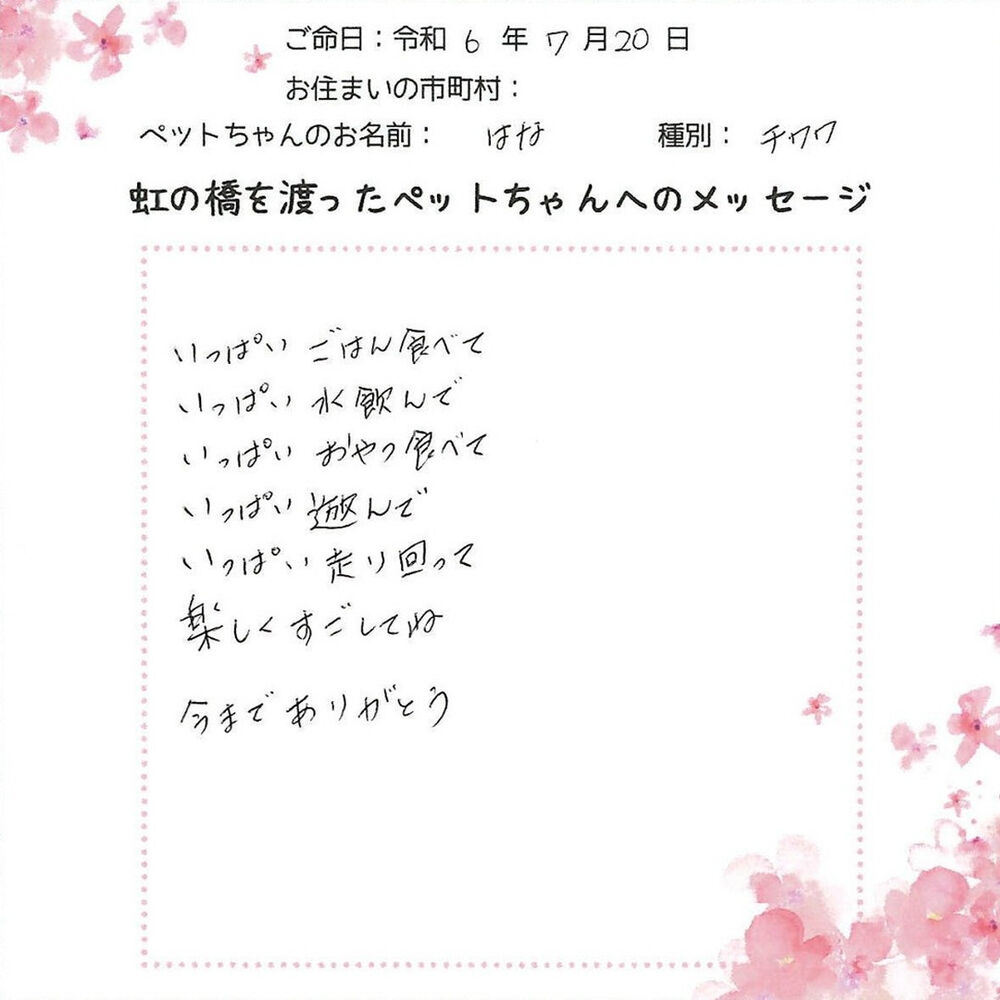 ご命日：令和 6 年 7 月 20 日
お住まいの市町村：
ペットちゃんのお名前： はな 種別： チワワ
虹の橋を渡ったペットちゃんへのメッセージ
いっぱい ごはん食べて
いっぱい 水飲んで
いっぱい おやつ食べて
いっぱい 遊んで
いっぱい 走り回って
楽しくすごしてね
今までありがとう